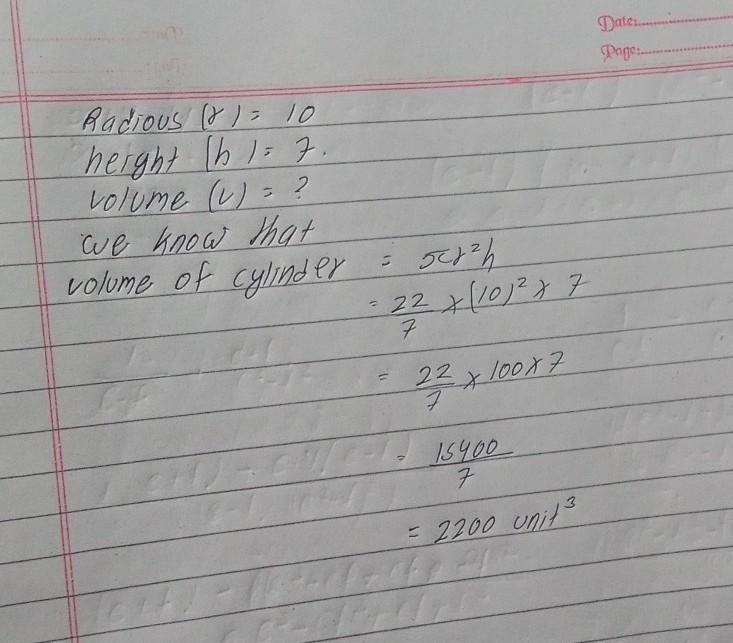 Date:
Page:
Radious (r) = 10
height (h) = 7.
volume (v) = ?
we know that
volume of cylinder = πr²h
= 22/7 × (10)² × 7
= 22/7 × 100 × 7
= 15400/7
= 2200 unit³